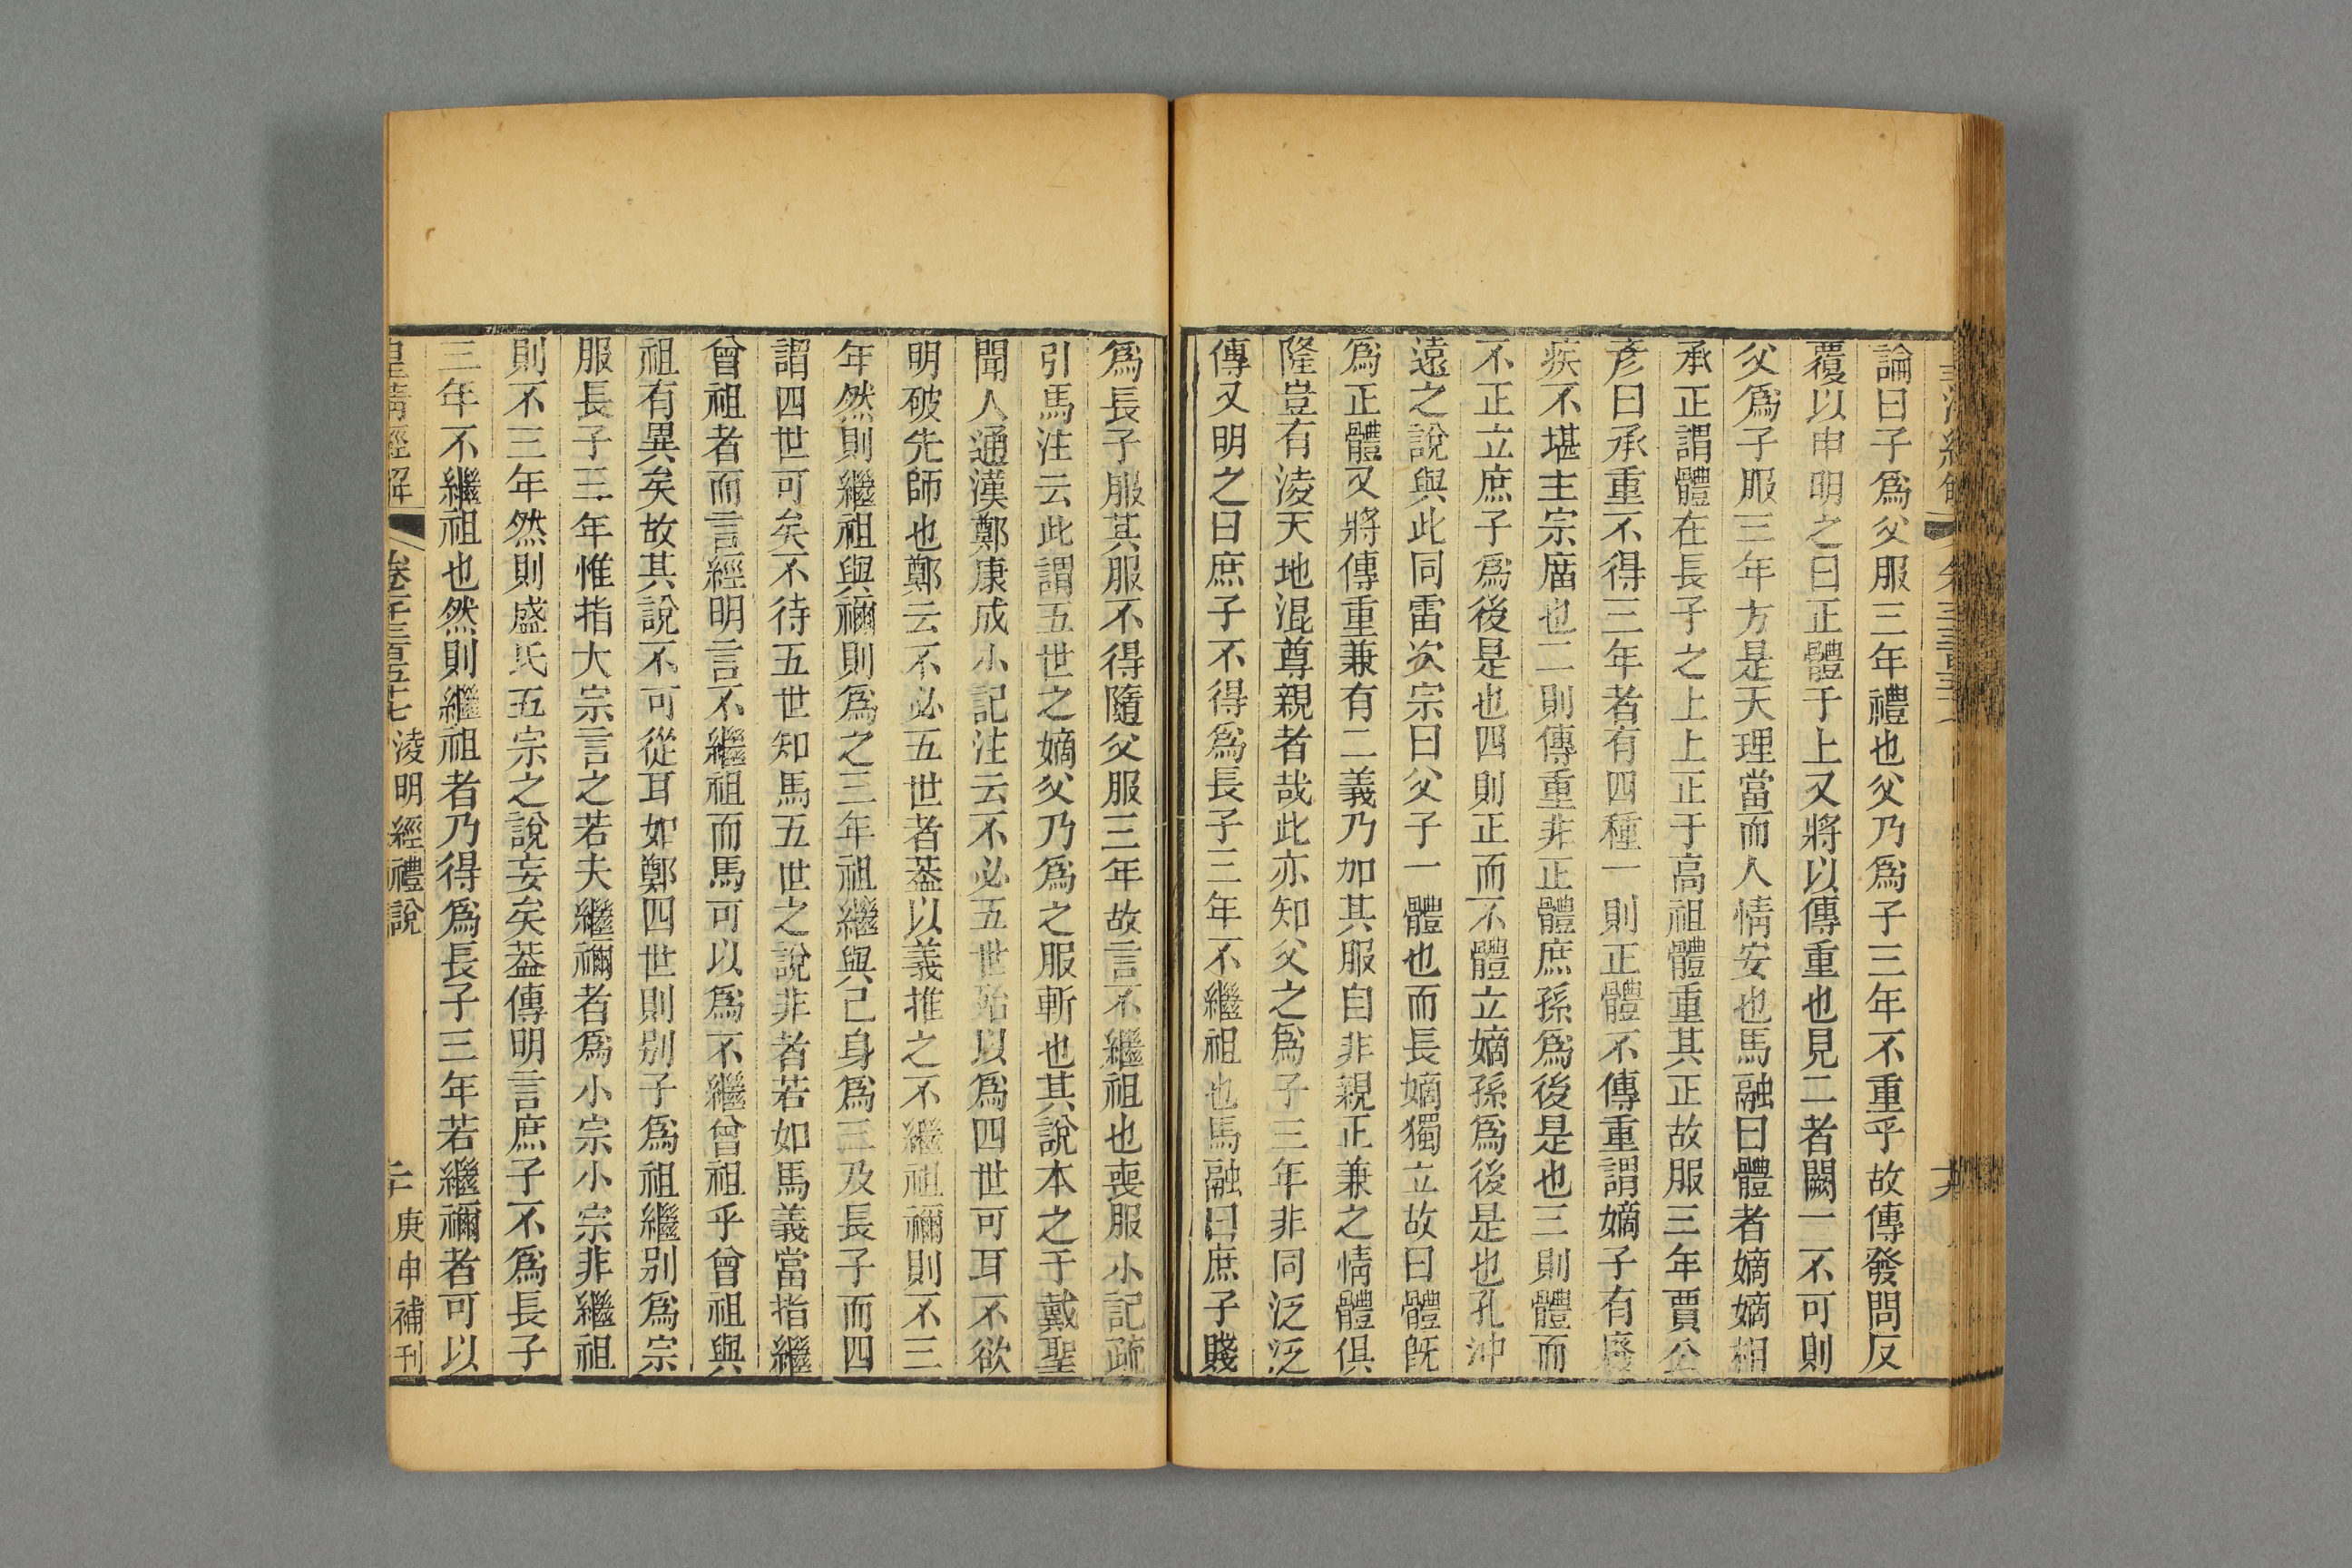 論曰子爲父服三年禮也父乃爲子三年不重乎故傳發問反
覆以申明之曰正體于上又將以傳重也見二者闕一不可則
父爲子服三年方是天理當而人情安也馬融曰體者嫡嫡相
承正謂體在長子之上上正于高祖體重其正故服三年賈公
彥曰承重不得三年者有四種一則正體不傳重謂嫡子有廢
疾不堪主宗廟也二則傳重非正體庶孫爲後是也三則體而
不正立庶子爲後是也四則正而不體立嫡孫爲後是也孔沖
遠之說與此同雷次宗曰父子一體也而長嫡獨立故曰體旣
爲正體又將傳重兼有二義乃加其服自非親正兼之情體俱
隆豈有淩天地混尊親者哉此亦知父之爲子三年非同泛泛
傳又明之曰庶子不得爲長子三年不繼祖也馬融曰庶子賤
爲長子服其服不得隨父服三年故言不繼祖也喪服小記疏
引馬注云此謂五世之嫡父乃爲之服斬也其說本之于戴聖
聞人通漢鄭康成小記注云不必五世殆以爲四世可耳不欲
明破先師也鄭云不必五世者葢以義推之不繼祖禰則不三
年然則繼祖與禰則爲之三年祖繼與己身爲三及長子而四
謂四世可矣不待五世知馬五世之說非者若如馬義當指繼
曾祖者而言經明言不繼祖而馬可以爲不繼曾祖乎曾祖與
祖有異矣故其說不可從耳如鄭四世則別子爲祖繼別爲宗
服長子三年惟指大宗言之若夫繼禰者爲小宗小宗非繼祖
則不三年然則盛氏五宗之說妄矣葢傳明言庶子不爲長子
三年不繼祖也然則繼祖者乃得爲長子三年若繼禰者可以
皇清經解 卷千三百五十七 淩明經禮說 二十 庚申補刊